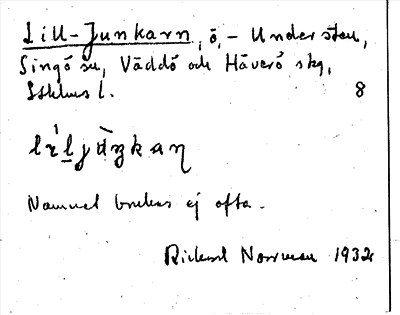 Lill-Junkarn, ö, - Understen,
Singö sn, Väddö och Häverö skg,
Sthlms l. 8
Namnet brukas ej ofta.
Rickard Norrman 1932